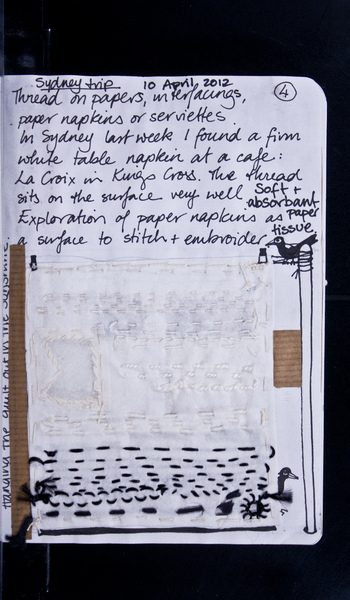 Sydney trip 10 April, 2012
4
Thread on papers, interfacings,
paper napkins or serviettes.
In Sydney last week I found a firm
white table napkin at a cafe:
La Croix in Kings Cross. The thread
sits on the surface very well. Soft +
absorbant
Exploration of paper napkins as paper
tissue
a surface to stitch + embroider
Hanging the quilt out in the sunshine.